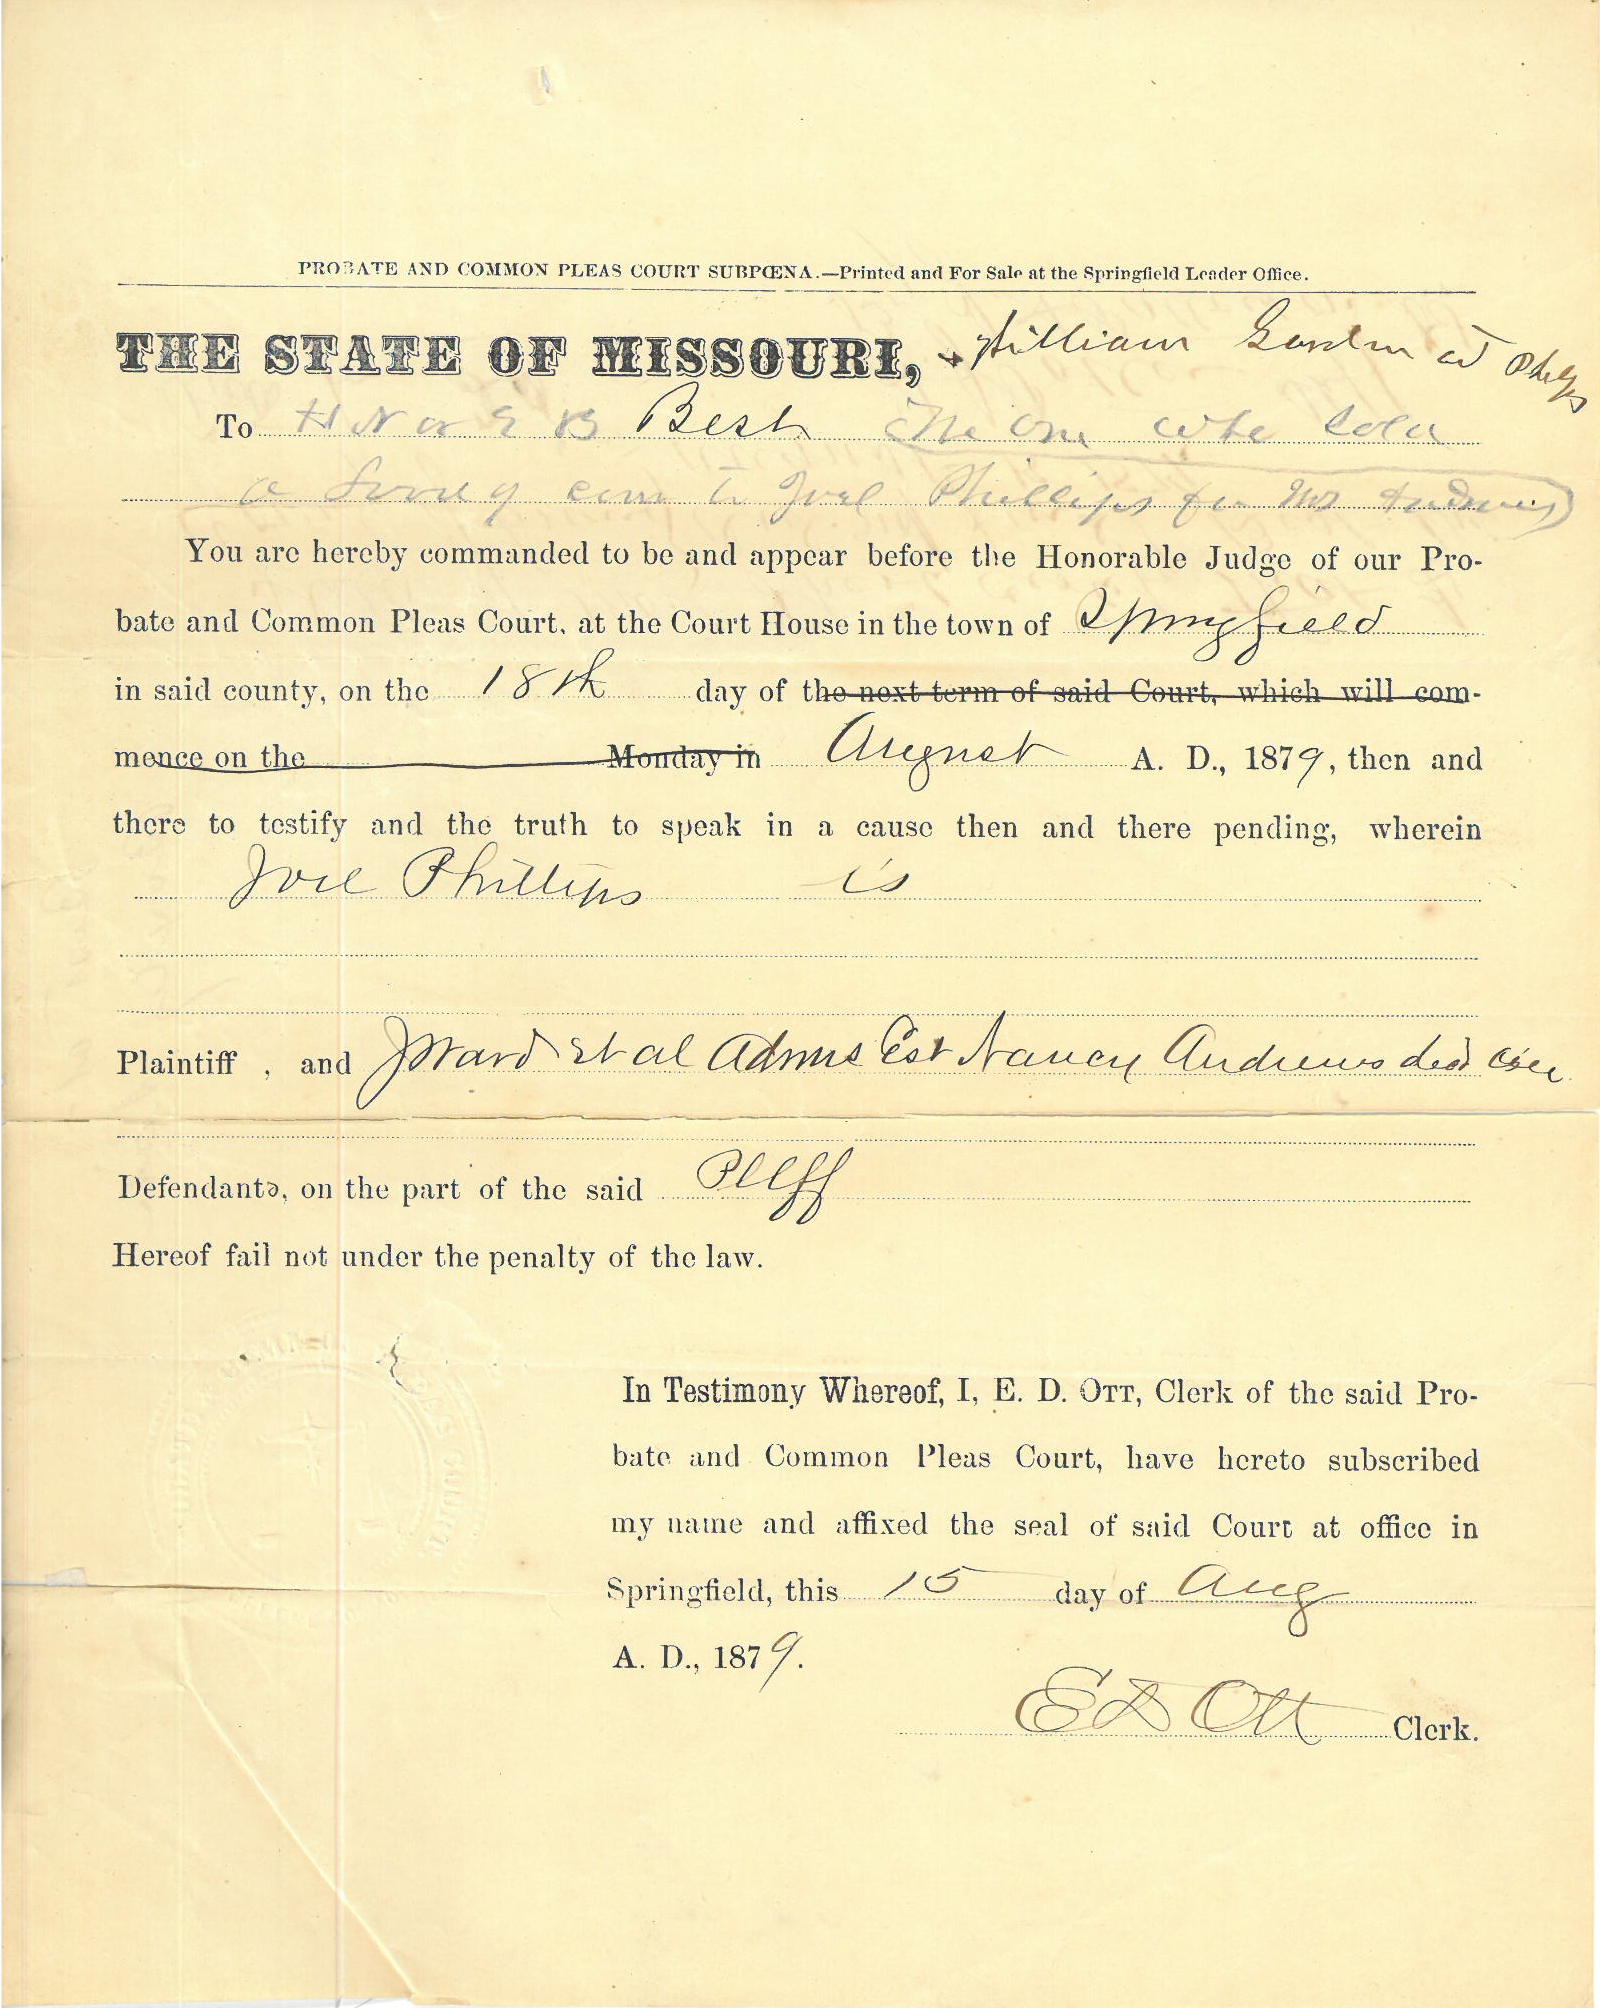 PROBATE AND COMMON PLEAS COURT SUBPŒNA.—Printed and For Sale at the Springfield Leader Office.
THE STATE OF MISSOURI, William Gordon at Phelps
To H N or E B Best The one who sold
a load of corn to Joel Phillips for Mrs Andrews)
You are hereby commanded to be and appear before the Honorable Judge of our Pro-
bate and Common Pleas Court, at the Court House in the town of Springfield
in said county, on the 18th day of the next term of said Court, which will com-
mence on the Monday in August A. D., 1879, then and
there to testify and the truth to speak in a cause then and there pending, wherein
Joel Phillips is
Plaintiff , and J Ward et al Adms Est Nancy Andrews decd are
Defendants, on the part of the said Plff
Hereof fail not under the penalty of the law.
In Testimony Whereof, I, E. D. OTT, Clerk of the said Pro-
bate and Common Pleas Court, have hereto subscribed
my name and affixed the seal of said Court at office in
Springfield, this 15 day of Aug
A. D., 1879.
E D Ott Clerk.